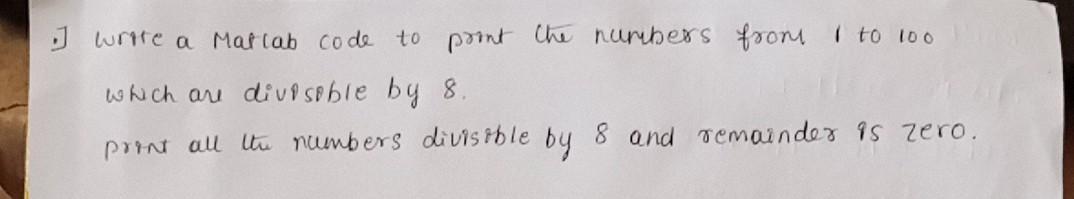 .] write a Matlab code to print the numbers from 1 to 100
which are divisible by 8.
print all the numbers divisible by 8 and remainder is zero.